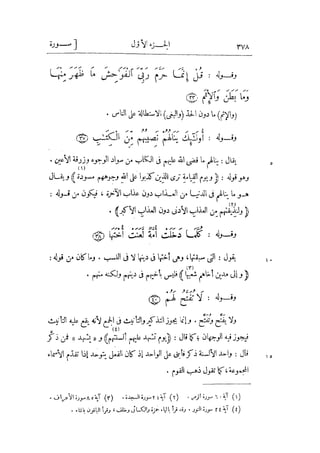 ٣٧٨ الجزء الأول [ سورة
وقوله : قُلْ إِنَّمَا حَرَّمَ رَبِّيَ الْفَوَاحِشَ مَا ظَهَرَ مِنْهَا
وَمَا بَطَنَ وَالْإِثْمَ ﴿٣٣﴾
(والإثم) ما دون الحدّ (والبغى) الاستطالة على الناس .
وقوله : أُولَٰئِكَ يَنَالُهُمْ نَصِيبُهُمْ مِنَ الْكِتَابِ ﴿٣٧﴾
٥ يقال : ينالهم ما قضى الله عليهم فى الكتاب من سواد الوجوه وزرقة الأعين .
وهو قوله : ﴿ ويوم القيامة ترى الذين كذبوا على الله وجوههم مسودة ﴾ ويقال
هو ما ينالهم فى الدنيا من العذاب دون عذاب الآخرة ، فيكون من قوله :
﴿ ولنذيقنهم من العذاب الأدنى دون العذاب الأكبر ﴾ .
وقوله : كُلَّمَا دَخَلَتْ أُمَّةٌ لَعَنَتْ أُخْتَهَا ﴿٣٨﴾
١٠ يقول : التى سبقتها ، وهى أختها فى دينها لا فى النسب . وما كان من قوله :
﴿ وإلى مدين أخاهم شعيبا ﴾ فليس بأخيهم فى دينهم ولكنه منهم .
وقوله : لَا تُفَتَّحُ لَهُمْ ﴿٤٠﴾
ولا يفتح وتُفتح . وإنما يجوز التذكير والتأنيث فى الجمع لأنه يقع عليه التأنيث
فيجوز فيه الوجهان ؛ كما قال : ﴿ يوم تشهد عليهم ألسنتهم ﴾ و « يشهد » فمن ذكّر
١٥ قال : واحد الألسنة ذكر فأبنى على الواحد إذ كان الفعل يتوحد إذا تقدّم الأسماء
المجموعة ، كما تقول ذهب القوم .
(١) آية ٦٠ سورة الزمر . (٢) آية ٢١ سورة السجدة . (٣) آية ٨٥ سورة الأعراف .
(٤) آية ٢٤ سورة النور . وقد قرأ بالياء حمزة والكسائى وخلف ، وقرأ الباقون بالتاء .